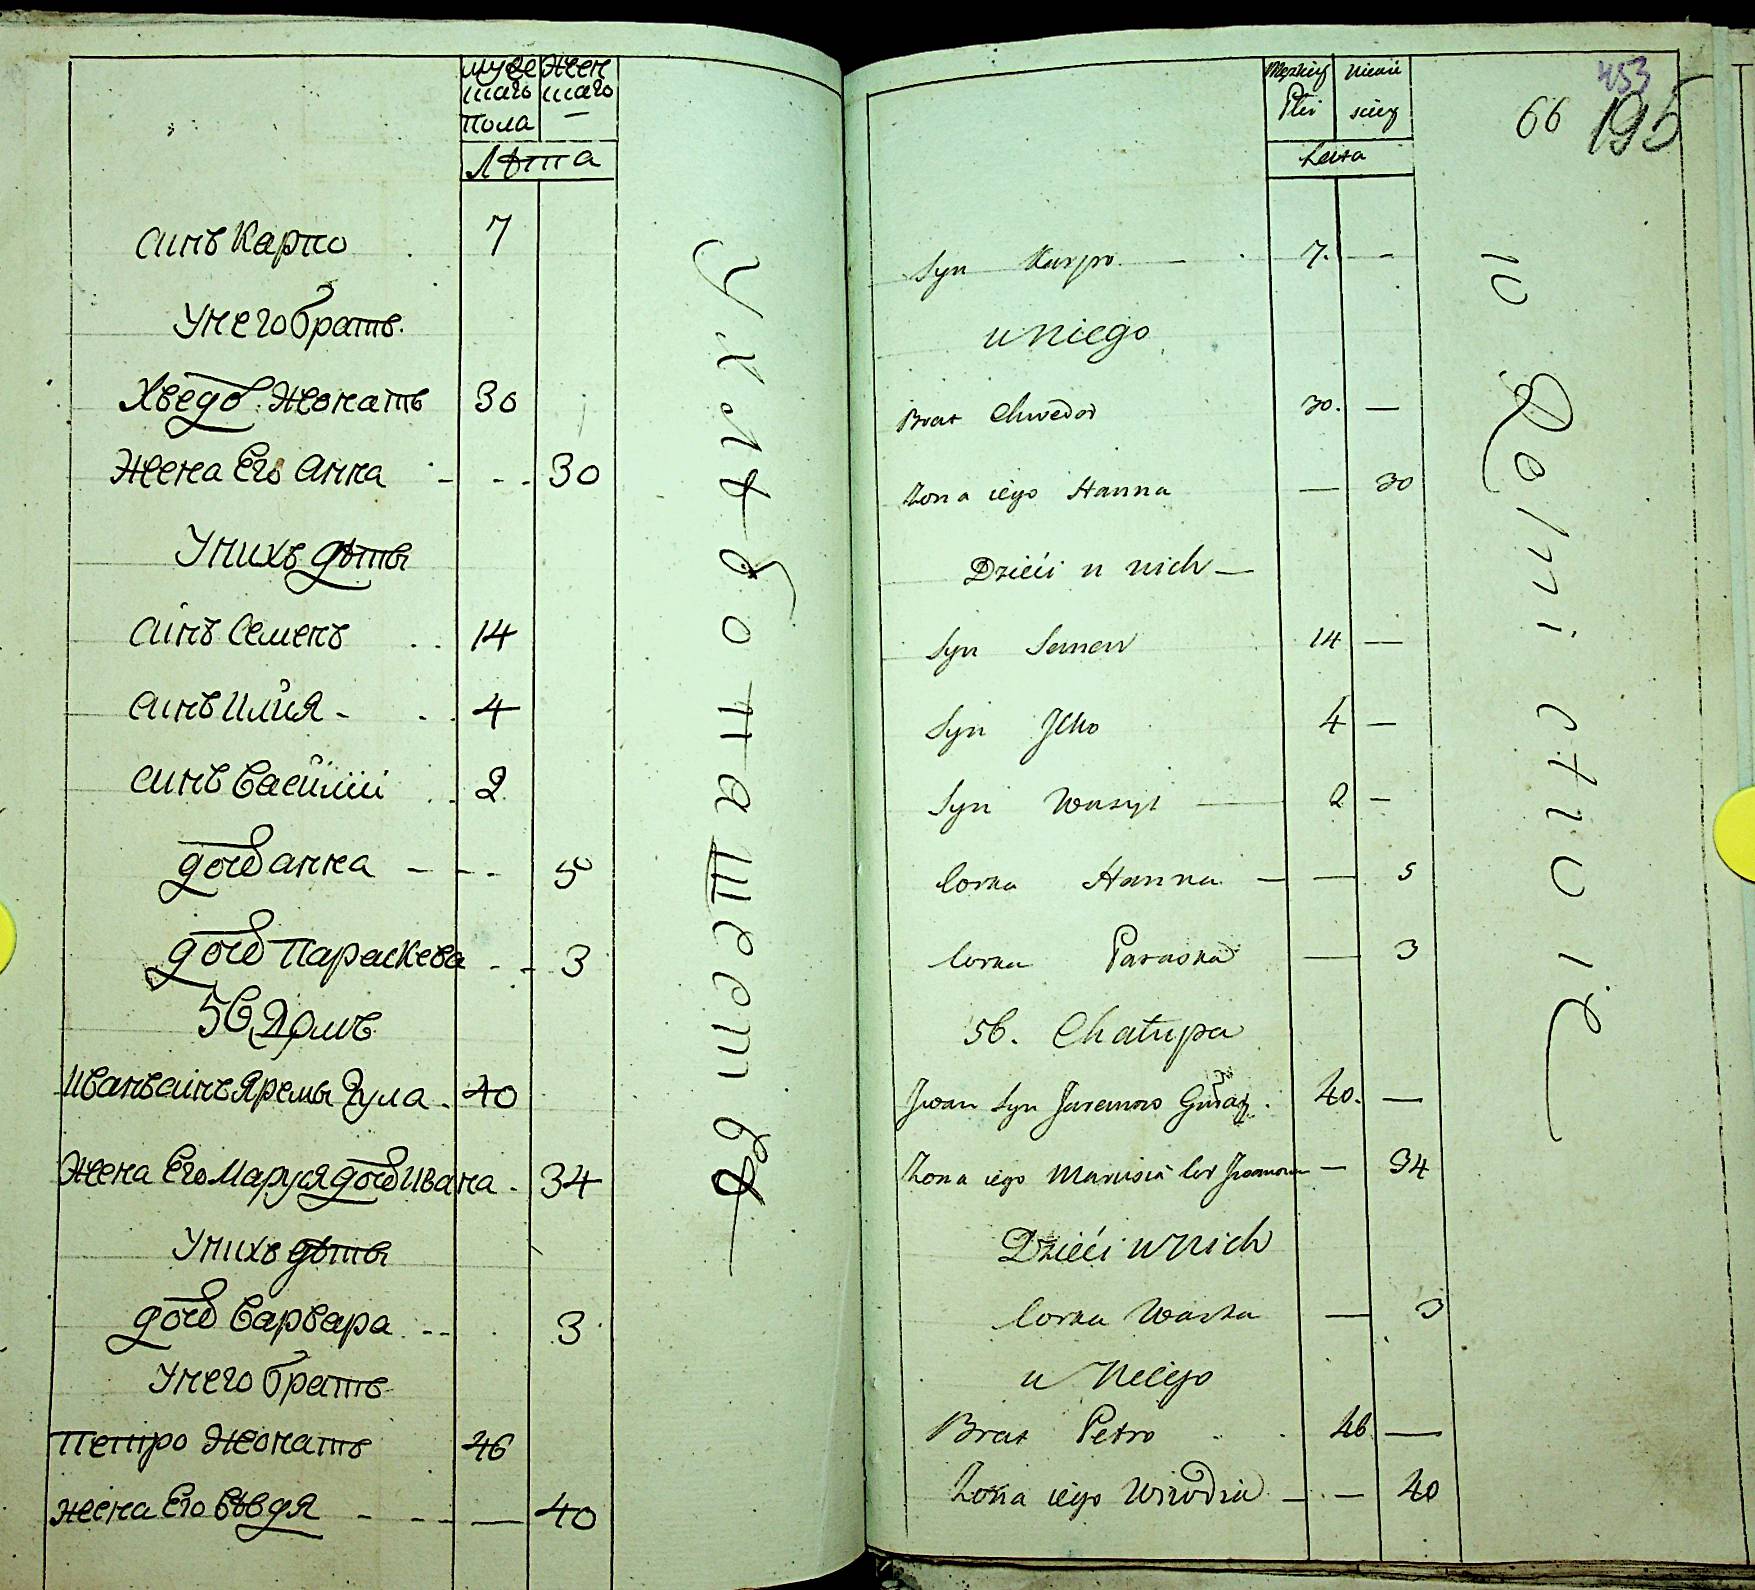 муже женс
шаго шаго
пола —
Лѣта
синъ Карпо 7
У него братъ.
Хведо. Жонатъ 30
Жена Его Анна - - - 30
У нихъ дѣты
синъ Семенъ 14
синъ Илия - 4
синъ Василій 2
дочь Анна - - - 5
дочь Параскева - - 3
56 Домъ
Иванъ синъ Яремы Гула 40
Жена Его Маруся дочь Ивана. 34
У нихъ дѣты
дочь Варвара - - 3
У него братъ
Петро Жонатъ 46
жена Его Евдя - - - — 40
Męzkiey Niewie
Płci sciey
Lata
453
66 195
Syn Karpo — 7. —
u Niego
Brat Chwedor 30. —
Zona iego Hanna — 30
Dzieci u nich —
Syn Semen 14 —
Syn Jlko 4 —
Syn Wasyl — 2 —
Corka Hanna — — 5
Corka Paraska — 3
56. Chałupa
Jwan Syn Jaremow 40. —
Zona iego Marusia Cor Jwanowa — 34
Dzieci u Nich
Corka Warka — 3
u Niego
Brat Petro 46 —
Zona iego — — 40